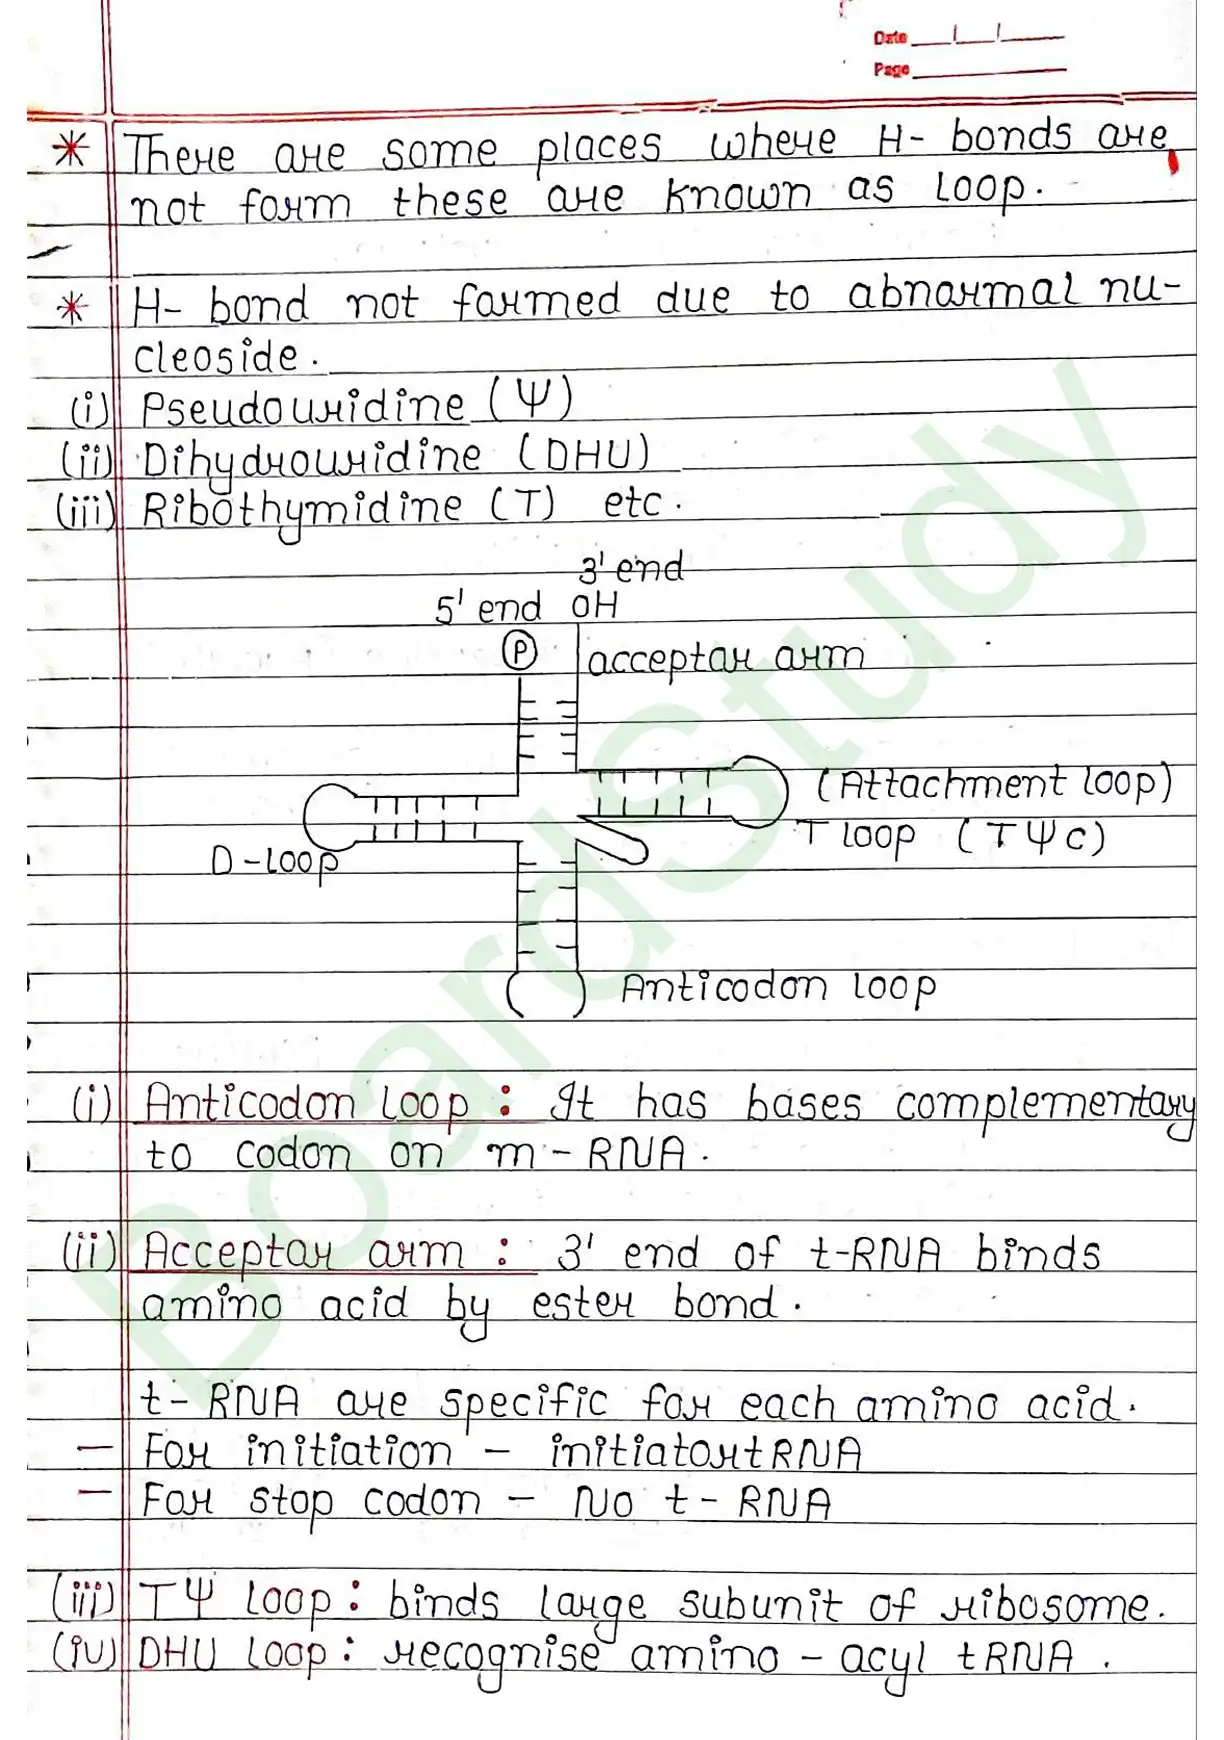 Date
Page
* There are some places where H- bonds are
not form these are known as loop.
* H- bond not formed due to abnormal nu-
cleoside.
(i) Pseudouridine (Ψ)
(ii) Dihydrouridine (DHU)
(iii) Ribothymidine (T) etc.
3' end
5' end OH
P
acceptor arm
(Attachment loop)
T loop (TΨC)
D-loop
Anticodon loop
(i) Anticodon loop : It has bases complementary
to codon on m-RNA.
(ii) Acceptor arm : 3' end of t-RNA binds
amino acid by ester bond.
t-RNA are specific for each amino acid.
— For initiation - initiator tRNA
— For stop codon - No t-RNA
(iii) TΨ loop : binds large subunit of ribosome.
(iv) DHU loop : recognise amino - acyl tRNA .
BoardStudy